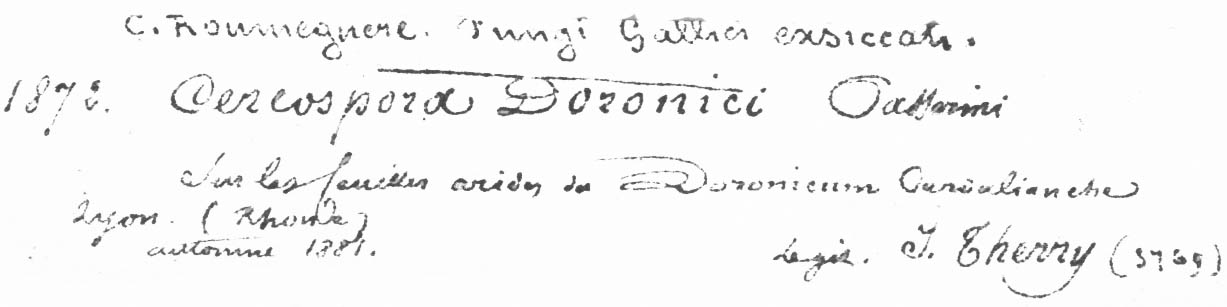 C. Roumeguere. Fungi Gallici exsiccati.
1872. Cercospora Doronici Passerini
Sur les feuilles arides du Doronicum Pardalianche
Lyon. (Rhone)
automne 1881.
Legit. J. Therry (5769)